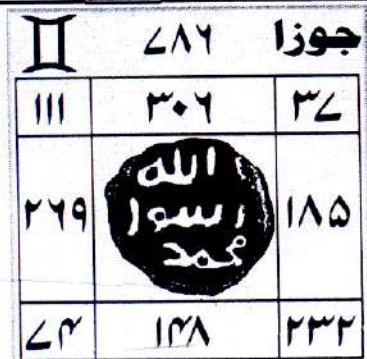 جوزا ۷۸۶ ♊
۳۷ ۳۰۶ ۱۱۱
۱۸۵
الله
رسول
محمد
۲۶۹
۲۳۲ ۱۴۸ ۷۴